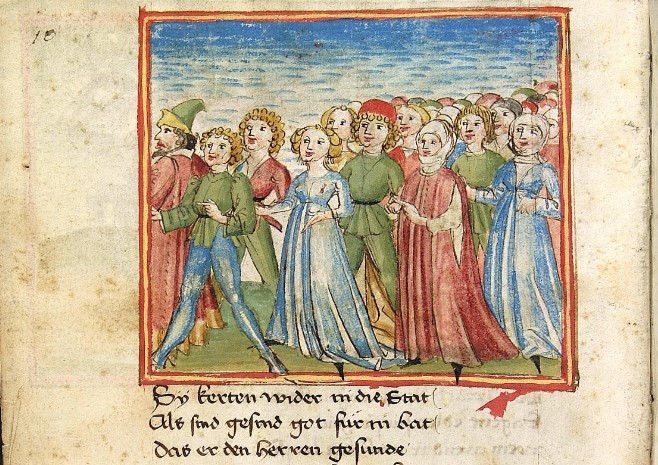 18
Sy kerten wider in die Stat
Als sind gesind got für in bat
das er den herren gesunde